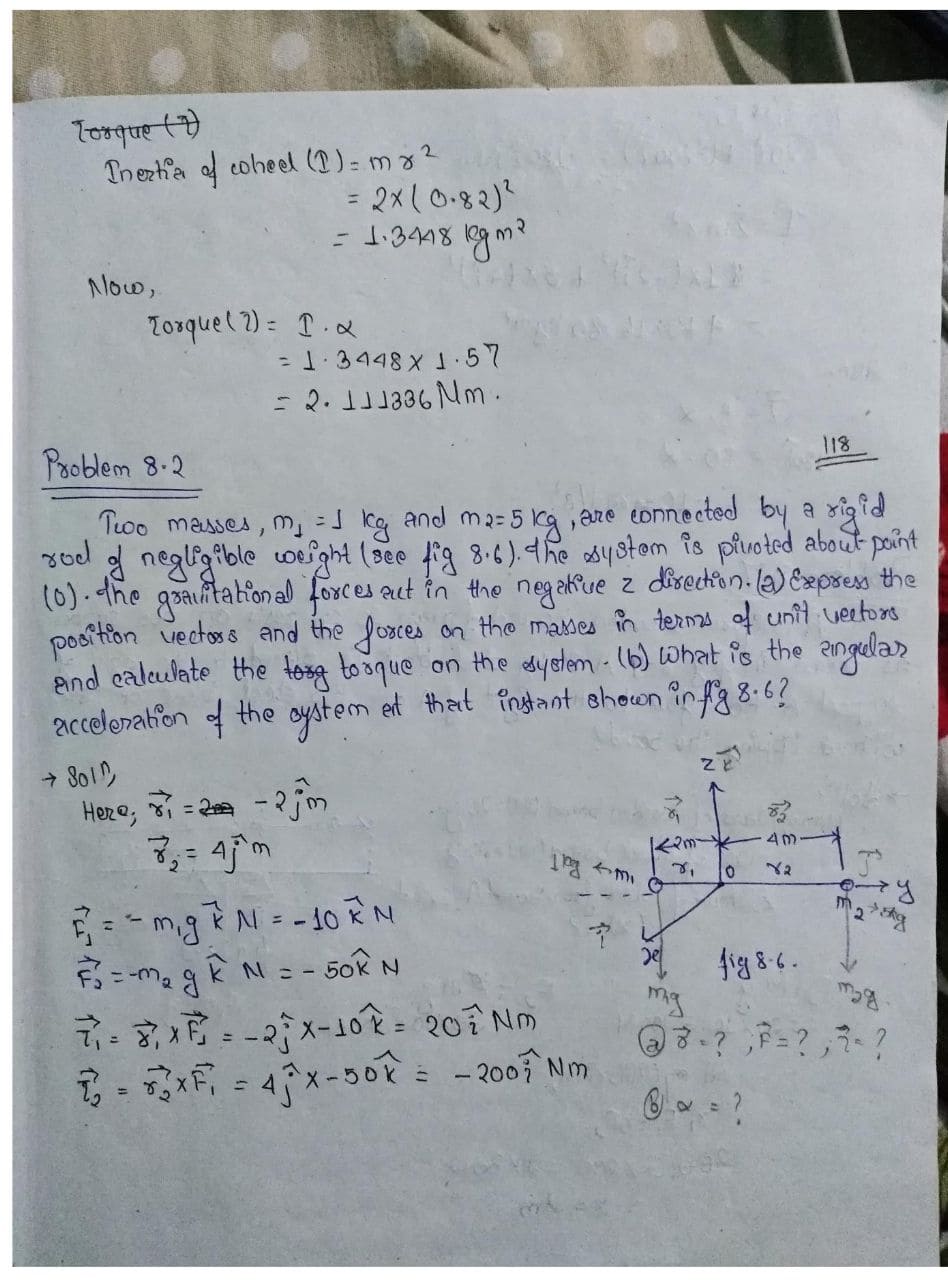 Torque (τ)
Inertia of wheel (I) = mr²
= 2x(0.82)²
= 1.3448 kgm²
Now,
Torque(τ) = I.α
= 1.3448 x 1.57
= 2.111336 Nm.
118
Problem 8.2
Two masses, m₁ = 1 kg and m₂=5 kg, are connected by a rigid
rod of negligible weight (see fig 8.6). The system is pivoted about point
(0). The gravitational forces act in the negative z direction. (a) Express the
position vectors and the forces on the masses in terms of unit vectors
and calculate the torq torque on the system. (b) What is the angular
acceleration of the system at that instant shown in fig 8.6?
→ Solⁿ,
Here, r⃗₁ = -2ĵm
r⃗₂ = 4ĵm
F⃗₁ = -m₁g k̂ N = -10 k̂ N
F⃗₂ = -m₂ g k̂ N = -50k̂ N
τ⃗₁ = r⃗₁ x F⃗₁ = -2ĵ x -10k̂ = 20î Nm
τ⃗₂ = r⃗₂ x F⃗₁ = 4ĵ x -50k̂ = -200î Nm
z k⃗
r⃗₁ r⃗₂
2m 4m
1kg ← m₁ r₁ 0 r₂ j⃗
y
m₂ → 5kg
i⃗ x
fig 8.6.
mg m₂g
(a) r⃗ = ?, F⃗ = ?, τ⃗ = ?
(b) α = ?